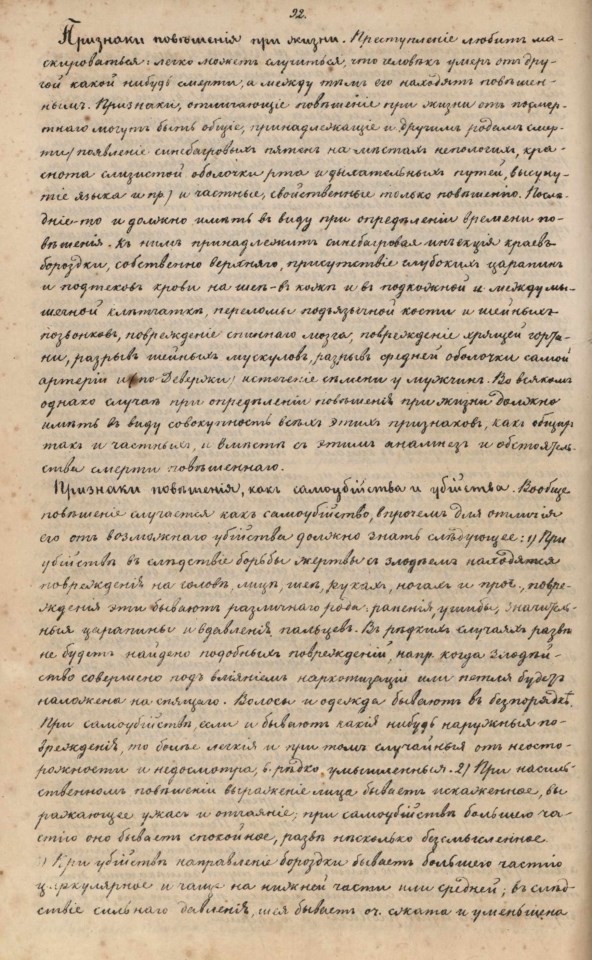 92.
Признаки повѣшенія при жизни. Преступленіе любитъ ма-
скироваться: легко можетъ случиться, что человѣкъ умеръ отъ дру-
гой какой нибудь смерти, а между тѣмъ его находятъ повѣшен-
нымъ. Признаки, отличающіе повѣшеніе при жизни отъ посмер-
тнаго могутъ быть общіе, принадлежащіе и другимъ родамъ смер-
ти (появленіе синебагровыхъ пятенъ на мѣстахъ непологихъ, кра-
снота слизистой оболочки рта и дыхательныхъ путей, высуну-
тіе языка и пр.) и частные, свойственные только повѣшенію. Послѣ-
дніе-то и должно имѣть въ виду при опредѣленіи времени по-
вѣшенія. Къ нимъ принадлежитъ синебагровая инъекція краевъ
бороздки, собственно верхняго, присутствіе глубокихъ царапинъ
и подтековъ крови на шеѣ-въ кожѣ и въ подкожной и между мы-
шечной клѣтчаткѣ, переломы подъязычной кости и шейныхъ
позвонковъ, поврежденіе спиннаго мозга, поврежденіе хрящей горта-
ни, разрывъ шейныхъ мускуловъ, разрывъ средней оболочки самой
артеріи и (по Девержи) истеченіе сѣмени у мужчинъ. Во всякомъ
однако случаѣ при опредѣленіи повѣшенія при жизни должно
имѣть въ виду совокупность всѣхъ этихъ признаковъ, какъ общихъ
такъ и частныхъ, и вмѣстѣ съ этимъ анамнезъ и обстоятель-
ства смерти повѣшеннаго.
Признаки повѣшенія, какъ самоубійства и убійства. Вообще
повѣшеніе случается какъ самоубійство, впрочемъ для отличія
его отъ возможнаго убійства должно знать слѣдующее: 1) При
убійствѣ въ слѣдствіе борьбы жертвы съ злодѣемъ находятся
поврежденія на головѣ, лицѣ, шеѣ, рукахъ, ногахъ и проч., повре-
жденія эти бываютъ различнаго рода: раненія, ушибы, значитель-
ныя царапины и вдавленія пальцевъ. Въ рѣдкихъ случаяхъ развѣ
не будетъ найдено подобныхъ поврежденій, напр. когда злодѣй-
ство совершено подъ вліяніемъ наркотизаціи или петля будетъ
наложена на спящаго. Волосы и одежда бываютъ въ безпорядкѣ.
При самоубійствѣ, если и бываютъ какія нибудь наружныя по-
врежденія, то болѣе легкія и при томъ случайныя отъ неосто-
рожности и недосмотра, б. рѣдко, умышленныя. 2) При насиль-
ственномъ повѣшеніи выраженіе лица бываетъ искаженное, вы
ражающее ужасъ и отчаяніе; при самоубійствѣ большею ча-
стію оно бываетъ спокойное, развѣ нѣсколько безсмысленное
) При убійствѣ направленіе бороздки бываетъ большею частію
циркулярное и чаще на нижней части или средней; въ слѣд-
ствіе сильнаго давленія, шея бываетъ оч. сжата и уменьшена